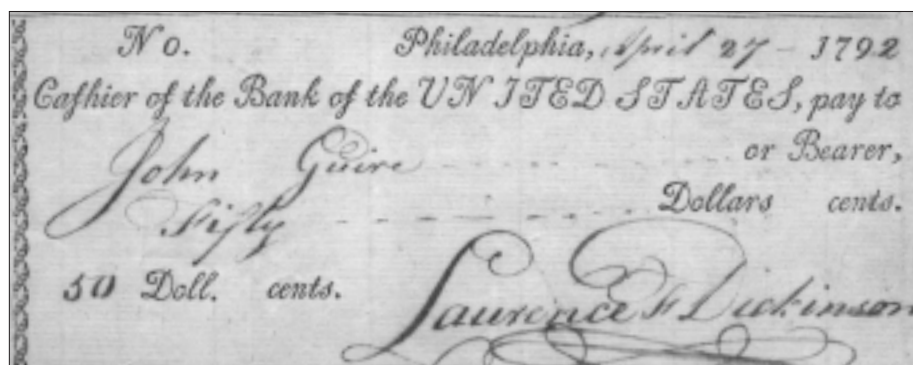 No. Philadelphia, April 27 - 1792
Caſhier of the Bank of the UNITED STATES, pay to
John Guire or Bearer,
Fifty Dollars cents.
50 Doll. cents.
Laurence F Dickinson